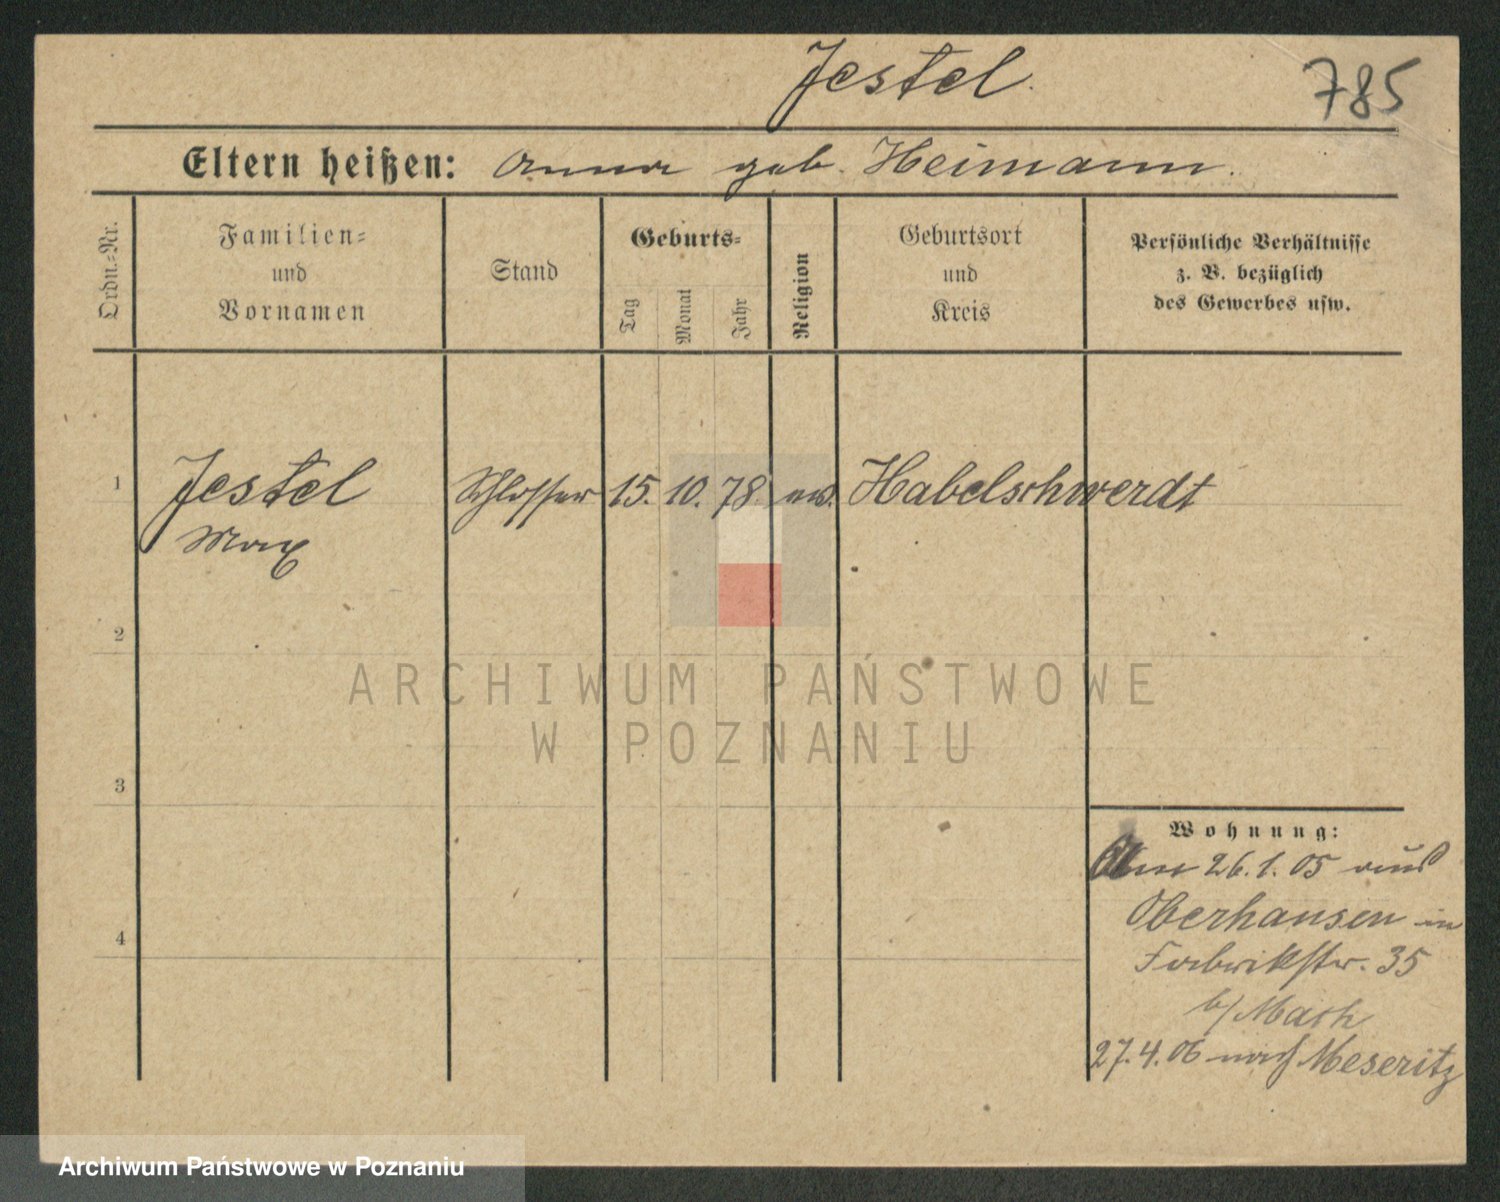 Jestel.
785
Eltern heißen: Anna geb. Heimann.
Ordn.-Nr.
Familien-
und
Vornamen
Stand
Geburts-
Tag
Monat
Jahr
Religion
Geburtsort
und
Kreis
Persönliche Verhältnisse
z. B. bezüglich
des Gewerbes usw.
1 Jestel Schlosser 15. 10. 78. ev. Habelschwerdt
Max
2
ARCHIWUM PAŃSTWOWE
W POZNANIU
3
Wohnung:
Am 26.1.05 aus
Oberhausen in
4
Fabrikstr. 35
b/ Math
27.4.06 nach Meseritz
Archiwum Państwowe w Poznaniu